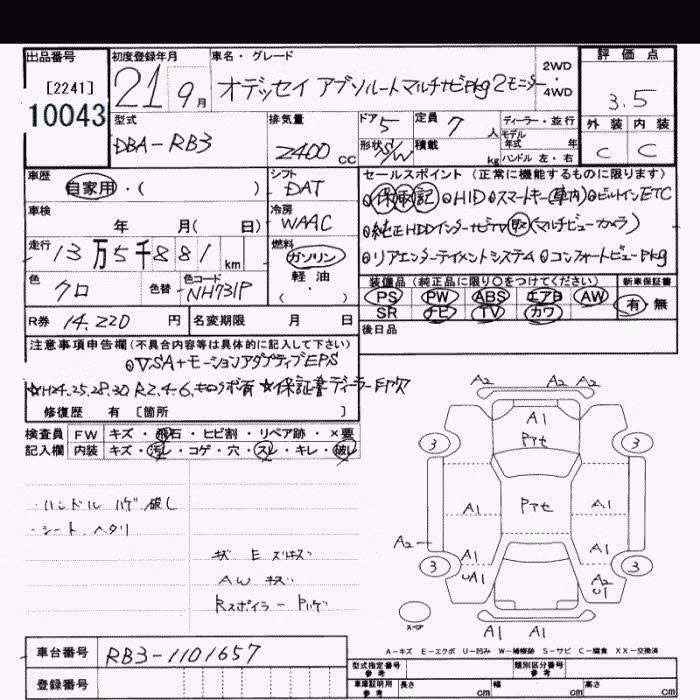 出品番号 初度登録年月 車名・グレード 評価点
[2241] 21 9月 オデッセイ アブソルートマルチナビPkg2モニター 2WD・4WD 3.5
10043 型式 排気量 ドア 5 定員 7人 ディーラー・並行 外装 内装
DBA-RB3 2400cc 形状 S/W 積載 kg モデル年式 年 C C
ハンドル 左・右
車歴 シフト セールスポイント(正常に機能するものに限ります)
自家用・( ) DAT 保 取 記 HID スマートキー(車内) ビルトインETC
車検 冷房 純正HDDインターナビTV 取(マルチビューカメラ)
年 月( 日) WAAC リアエンターテイメントシステム コンフォートビューPkg
走行 13万5千881km 燃料 ガソリン 軽油 (・)
装備品(純正品に限り○をつけてください) 新車保証書
色 クロ 色替 色コード NH731P PS PW ABS エアB AW 有・無
SR ナビ TV カワ
R券 14,220円 名変期限 月 日 後日品
注意事項申告欄(不具合内容等は具体的に記入して下さい)
VSA+モーションアダプティブEPS
☆H24.25.28.30 R2.4.6.キロク ボ有 ☆保証書ディーラー印欠
修復歴 有 [箇所 ]
検査員 FW キズ・飛石・ヒビ割・リペア跡・×要
記入欄 内装 キズ・汚レ・コゲ・穴・スレ・キレ・破レ
・ハンドル ハゲ 破レ
・シート ヘタリ
キズ E ズレキズ
AW キズ
Rスポイラー Pハゲ
A2 A2 A2
A1
3 Pナセ 3
Pナセ
A1 A1
A2
A1 A1
3 UA1 A2 U1 3
スペア
A1 A1
A-キズ E-エクボ U-凹み W-補修跡 S-サビ C-腐食 XX-交換済
車台番号 RB3-1101657
型式指定番号 参考 類別区分番号 参考
登録番号
車庫証明用 参考 長さ cm 幅 cm 高さ cm